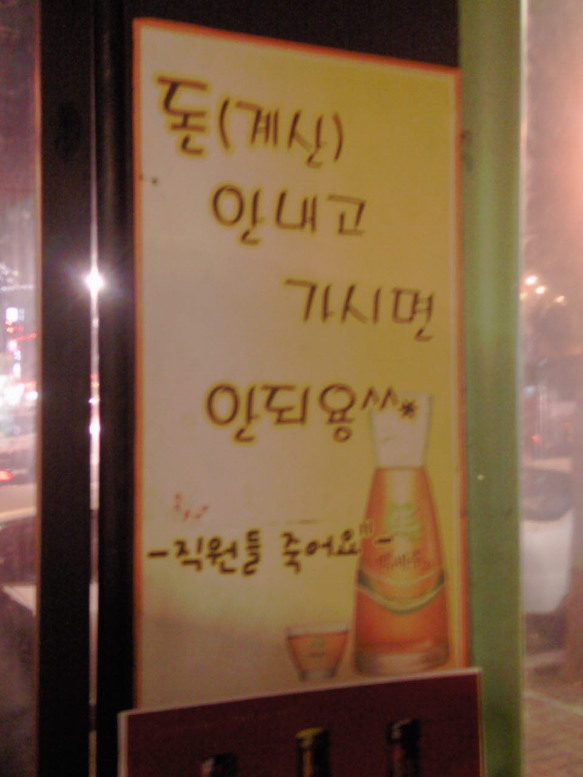 돈(계산)
안내고
가시면
안되용^^*
-직원들 죽어요-
백세주